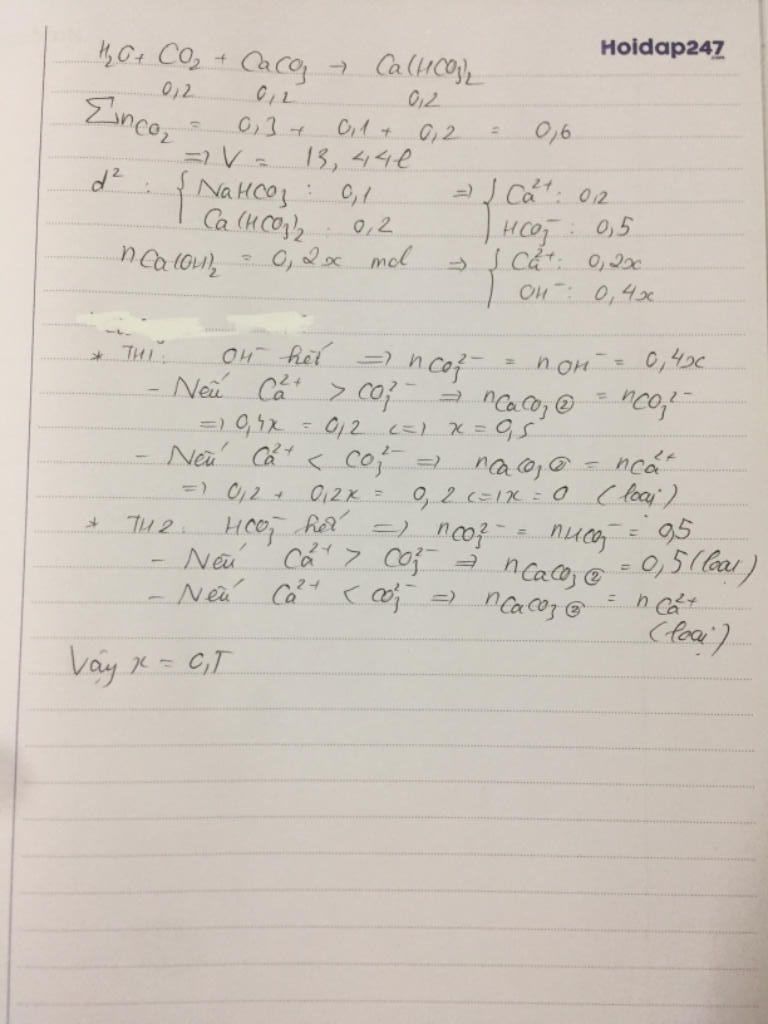 Hoidap247
.com
H₂O + CO₂ + CaCO₃ → Ca(HCO₃)₂
0,2 0,2 0,2
∑nCO₂ = 0,3 + 0,1 + 0,2 = 0,6
=> V = 13,44l
d² : { NaHCO₃ : 0,1 => { Ca²⁺ : 0,2
Ca(HCO₃)₂ : 0,2 HCO₃⁻ : 0,5
nCa(OH)₂ = 0,2x mol => { Ca²⁺ : 0,2x
OH⁻ : 0,4x
* TH1: OH⁻ hết => nCO₃²⁻ = nOH⁻ = 0,4x
- Nếu Ca²⁺ > CO₃²⁻ => nCaCO₃② = nCO₃²⁻
=> 0,4x = 0,2 <=> x = 0,5
- Nếu Ca²⁺ < CO₃²⁻ => nCaCO₃② = nCa²⁺
=> 0,2 + 0,2x = 0,2 <=> x = 0 (loại)
* TH2: HCO₃⁻ hết => nCO₃²⁻ = nHCO₃⁻ = 0,5
- Nếu Ca²⁺ > CO₃²⁻ => nCaCO₃② = 0,5 (loại)
- Nếu Ca²⁺ < CO₃²⁻ => nCaCO₃② = nCa²⁺
(loại)
Vậy x = 0,5